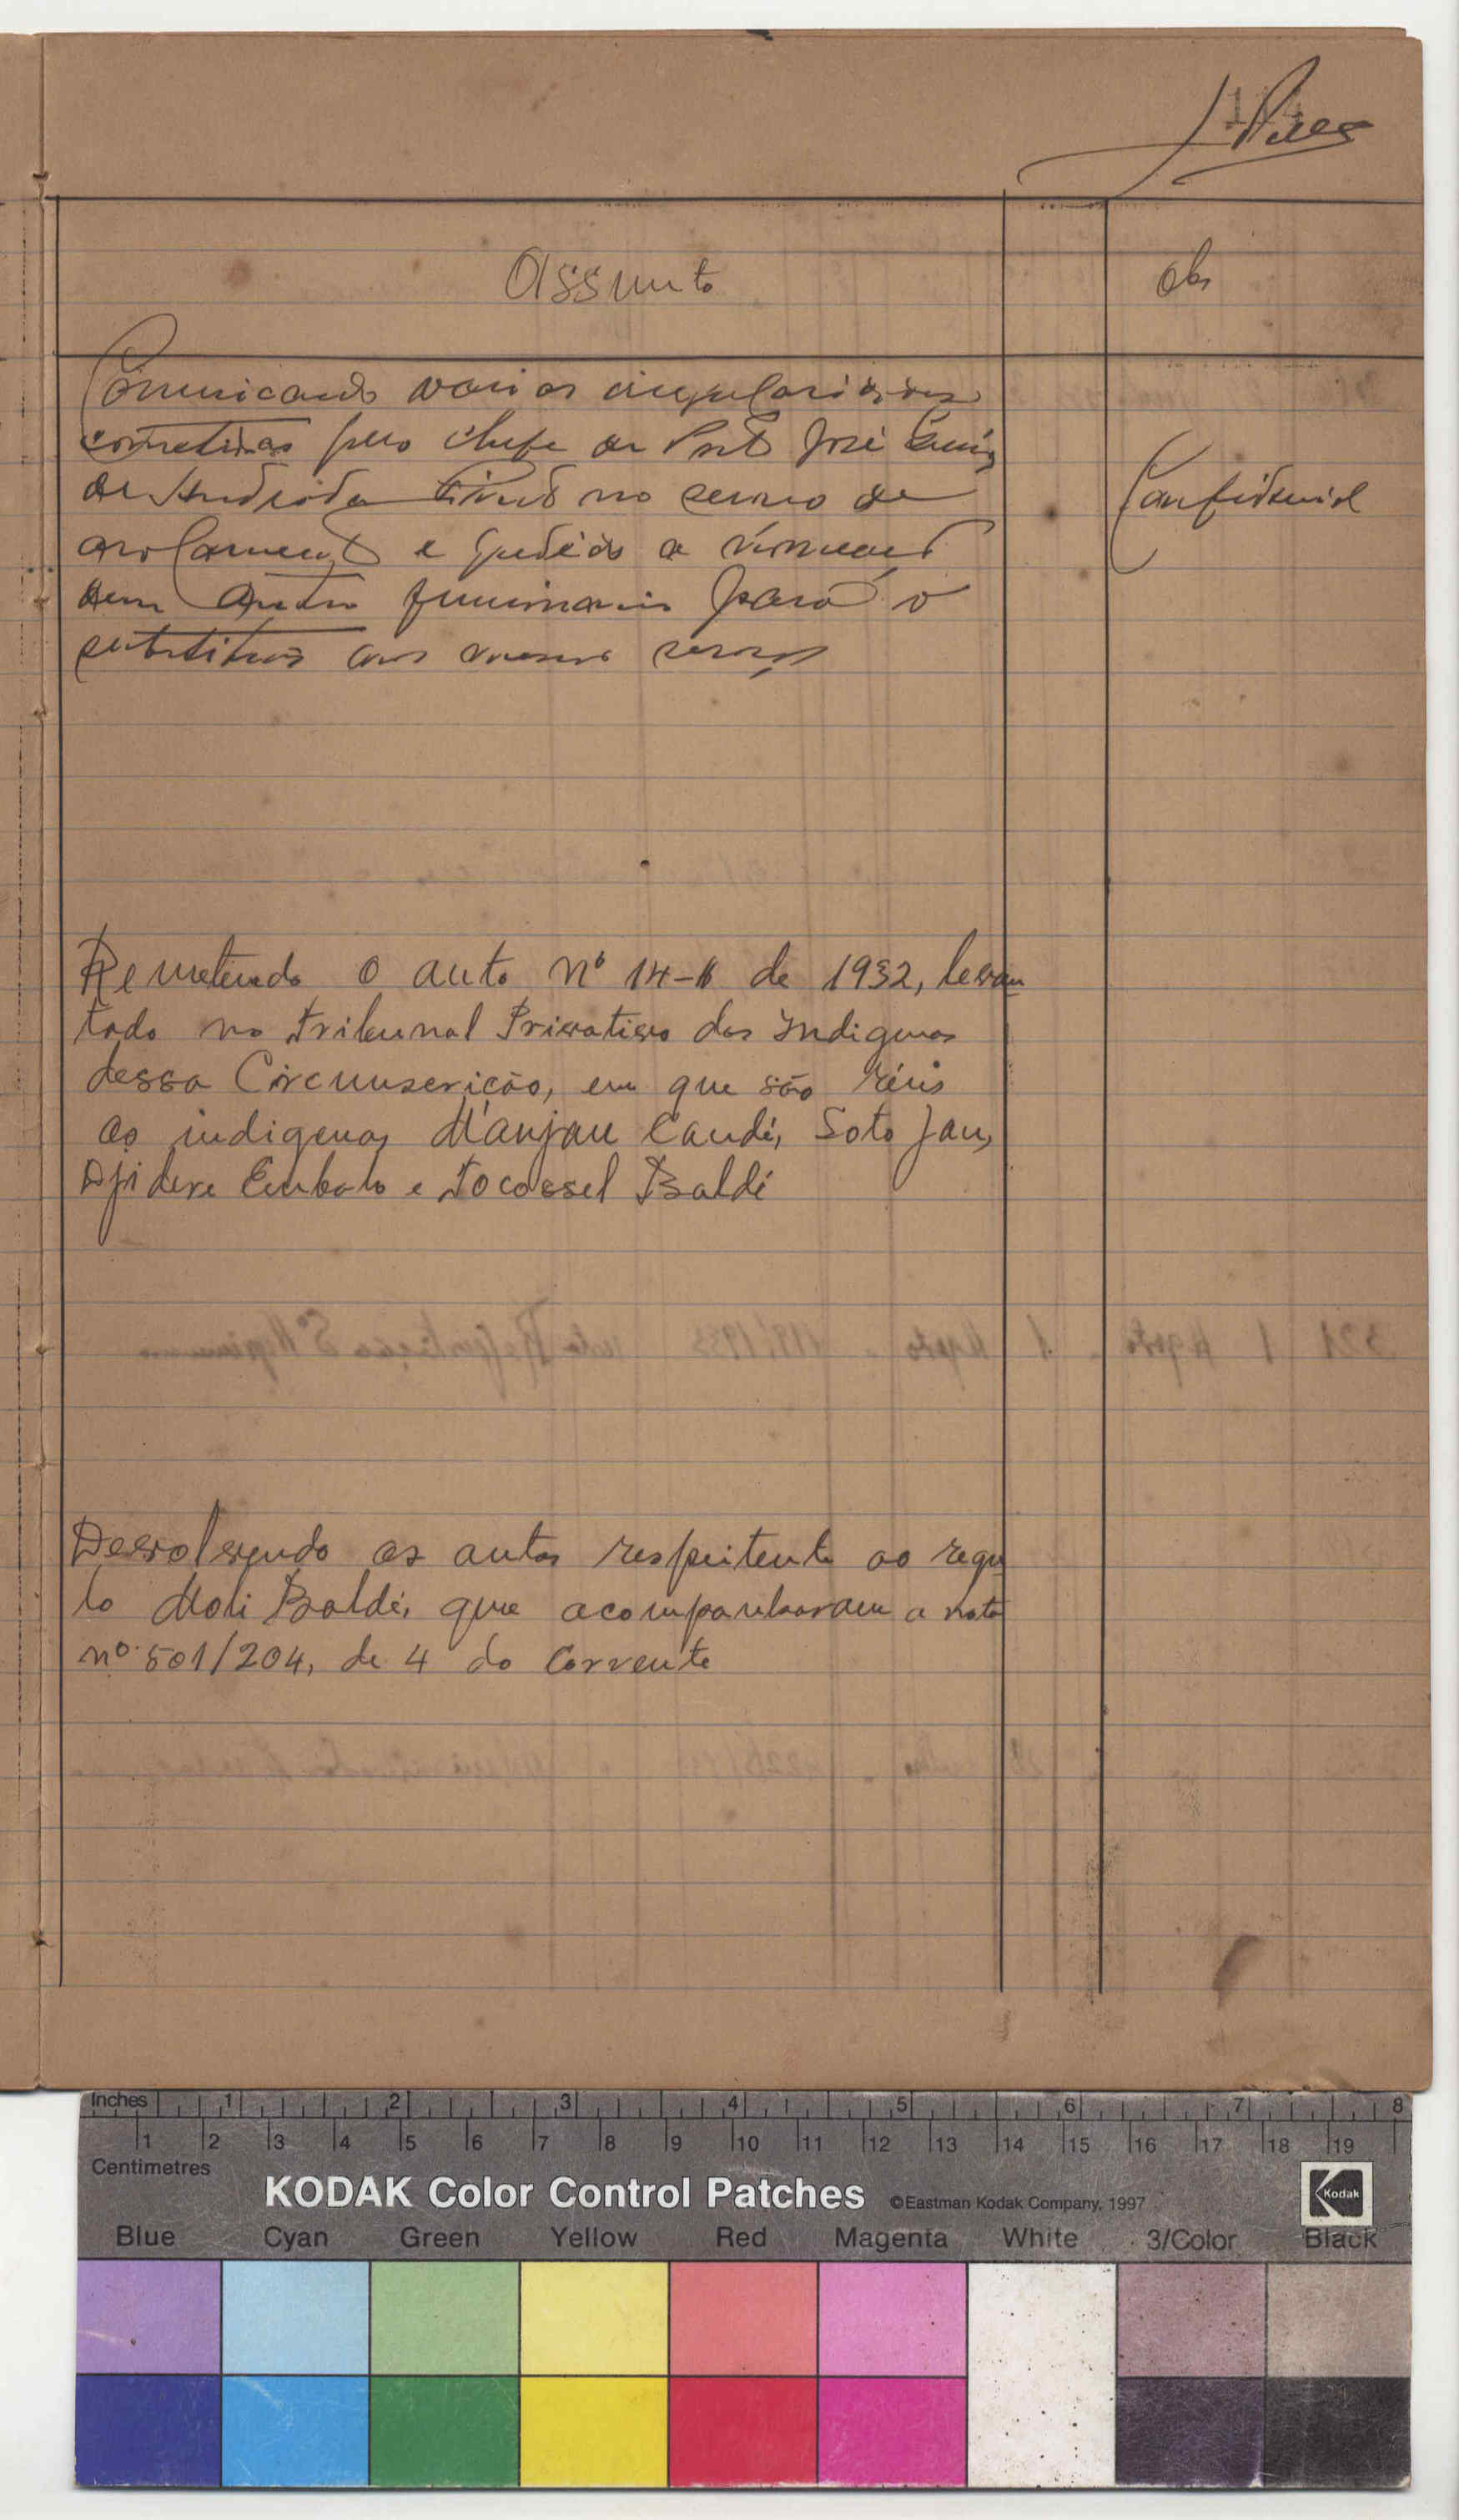 114
JPires
Assunto
Obs
Comunicando varias irregularidades
cometidas pelo Chefe de Posto José
de no serviço de
arolamento e pedido a
dum outro funcionario para o
substituir
Confidencial
Remetendo o auto nº 14-B de 1932, levan
tado no Tribunal Privativo dos Indigenas
dessa Circunscrição, em que são réus
os indigenas M'anjau Candé, Soto Jau,
Djidere Embalo e Tocossel Baldé
Devolvendo os autos respeitente ao regu
lo Moli Baldé, que acompanharam a nota
nº 501/204, de 4 do Corrente
321 1 Agosto 1 Agosto
Inches 1 2 3 4 5 6 7 8
1 2 3 4 5 6 7 8 9 10 11 12 13 14 15 16 17 18 19
Centimetres
KODAK Color Control Patches ©Eastman Kodak Company, 1997 Kodak
Blue Cyan Green Yellow Red Magenta White 3/Color Black